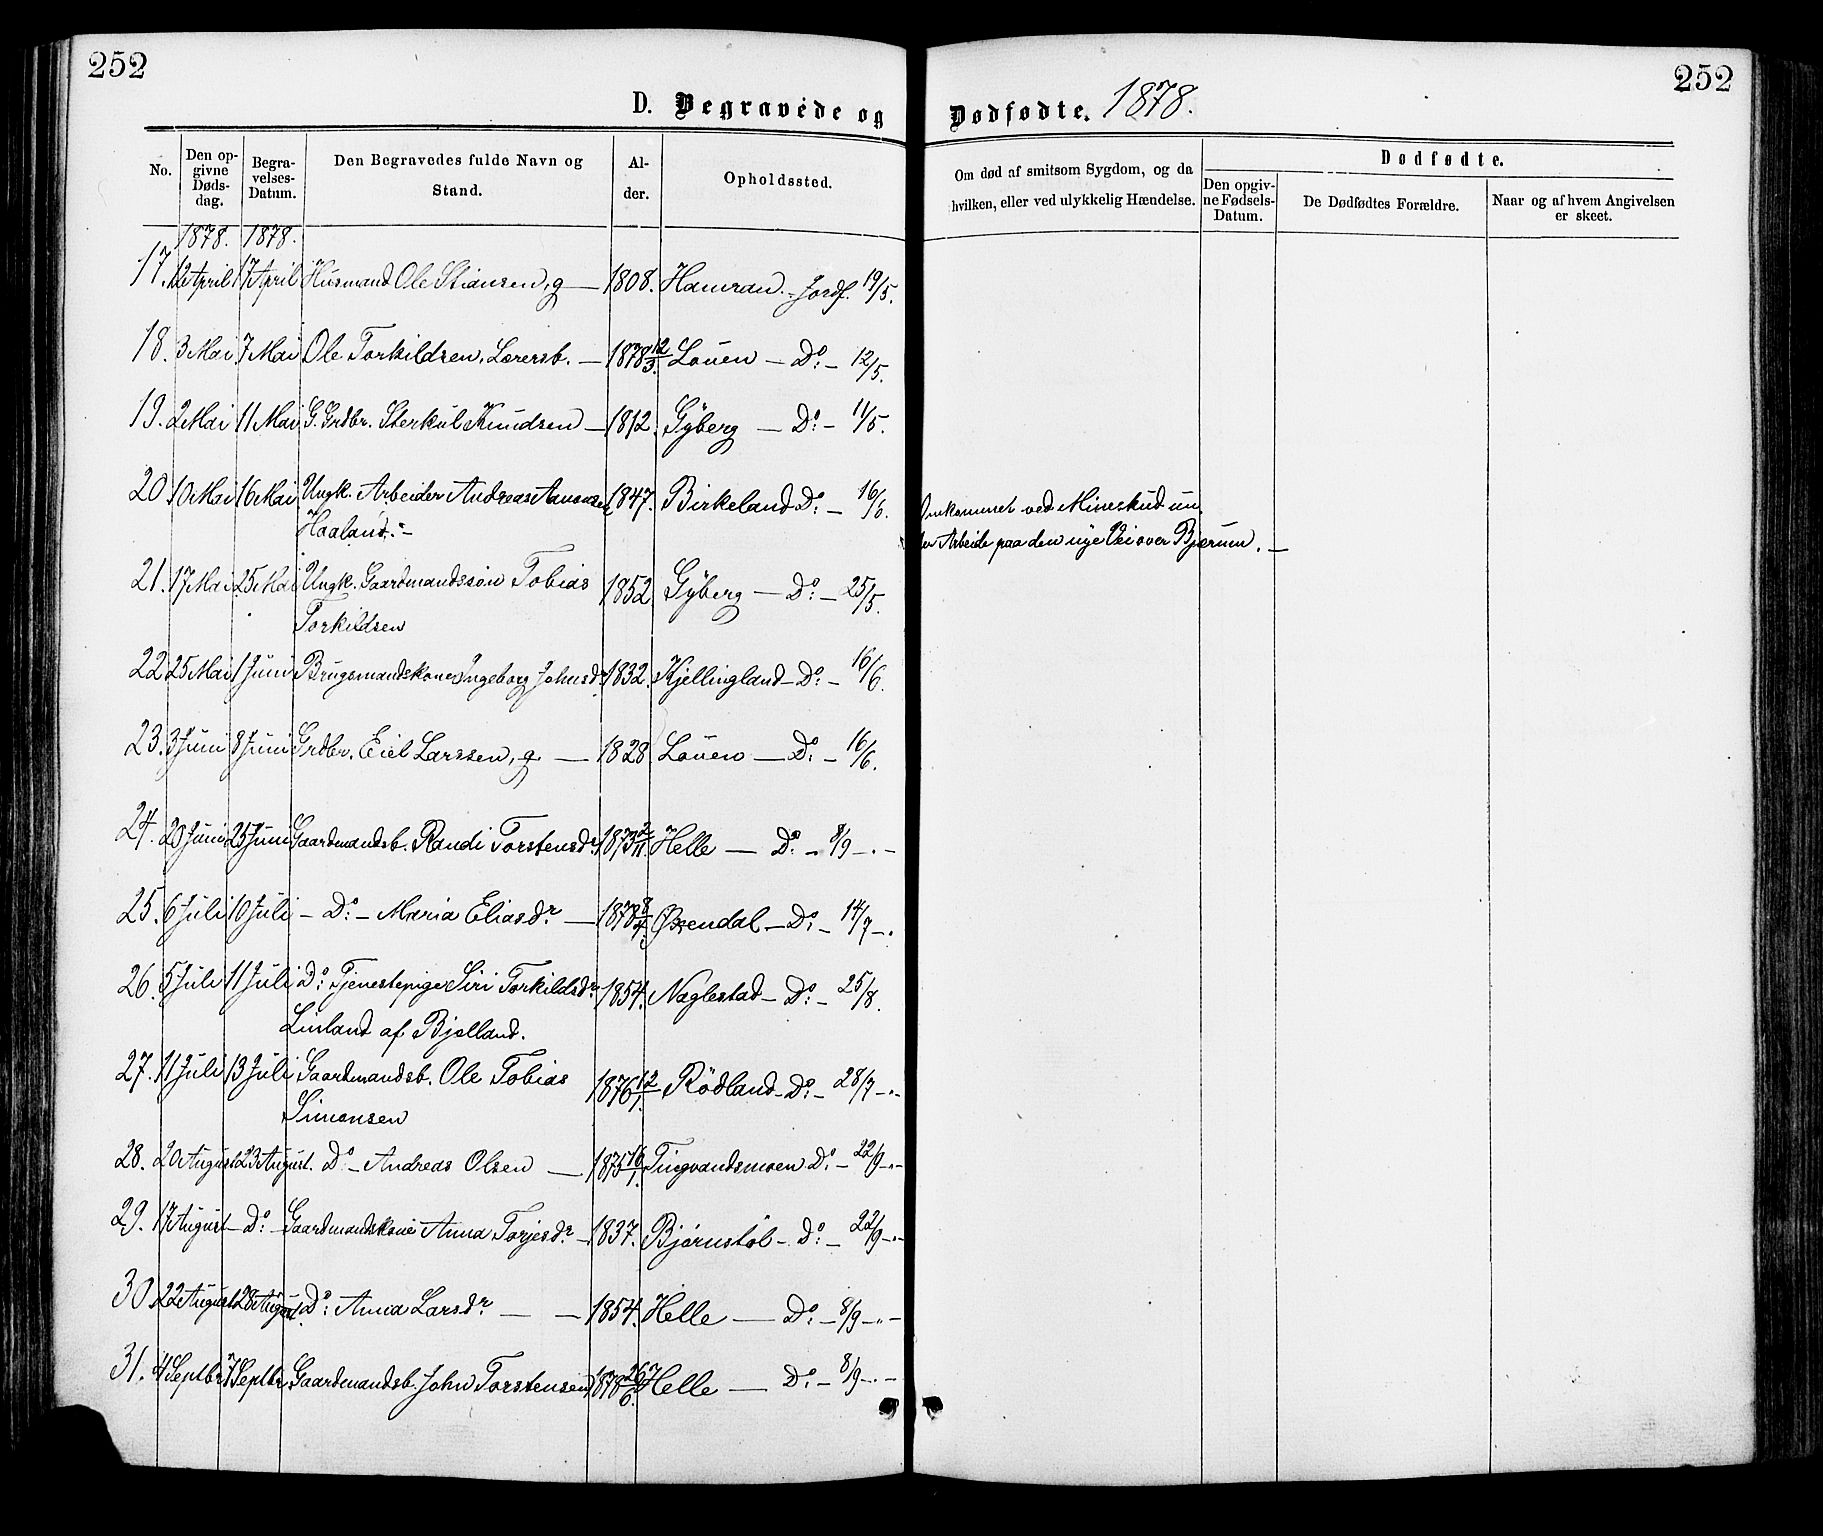 252
252
D. Begravede og Dødfødte. 1878.
No.
Den op-
givne
Døds-
dag.
Begra-
velses-
Datum.
Den Begravedes fulde Navn og
Stand.
Al-
der.
Opholdssted.
Om død af smitsom Sygdom, og da
hvilken, eller ved ulykkelig Hændelse.
Dødfødte.
Den opgiv-
ne Fødsels-
Datum.
De Dødfødtes Forældre.
Naar og af hvem Angivelsen
er skeet.
1878. 1878.
17. 12 April 17 April Husmand Ole Stiansen, g — 1808. Hamran. - Jordf. 19/5.
18. 3 Mai 7 Mai Ole Torkildsen, Lærersb. — 1878 12/3. Louen — Do: — 12/5.
19. 2 Mai 11 Mai G. Grdbr. Sterkul Knudsen — 1812. Gyberg — Do: — 11/5.
20. 10 Mai 16 Mai Ungk. Arbeider Andreas Aanonsen 1847. Birkeland Do: — 16/6. Omkommet ved Mineskud un
Haaland. - der Arbeide paa den nye Vei over Bjerum. —
21. 17 Mai 25 Mai Ungk. Gaardmandssøn Tobias 1852. Gyberg — Do: — 25/5.
Torkildsen
22. 25 Mai 1 Juni Brugsmandskone Ingeborg Johnsdr 1832. Kjellingland — Do: — 16/6.
23. 3 Juni 8 Juni Grdbr. Eiel Larssen, g. — 1828 Louen — Do: — 16/6.
24. 20 Juni 25 Juni Gaardmandsb. Randi Torstensdr. 1873 2/11. Helle — Do: — 8/9 —
25. 6 Juli 10 Juli — Do: — Maria Eliasdr. — 1878 8/4. Øxendal — Do: — 14/7 —.
26. 5 Juli 11 Juli Do: Tjenestepige Siri Torkildsdr. 1854. Naglestad — Do: — 25/8.
Linland af Bjelland.
27. 11 Juli 13 Juli Gaardmandsb. Ole Tobias 1876 12/1. Rödland — Do: — 28/7 —
Simonsen
28. 20 August 23 August. Do — Andreas Olsen — 1875 16/1. Tingvandsmoen Do: — 22/9 —
29. 17 August — Do: — Gaardmandskone Anna Torjesdr. — 1837. Bjørnstøl — Do: — 22/9 —
30. 22 August 28 August. Do: Anna Larsdr. — — 1854. Helle — Do: — 8/9 —
31. 4 Septbr 7 Septbr. Gaardmandsb. John Torstensen 1878 26/6. Helle — Do: — 8/9 —